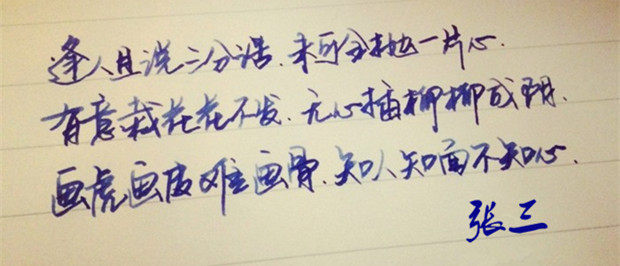 逢人且说三分话.未可全抛一片心.
有意栽花花不发.无心插柳柳成阴.
画虎画皮难画骨.知人知面不知心.
张三